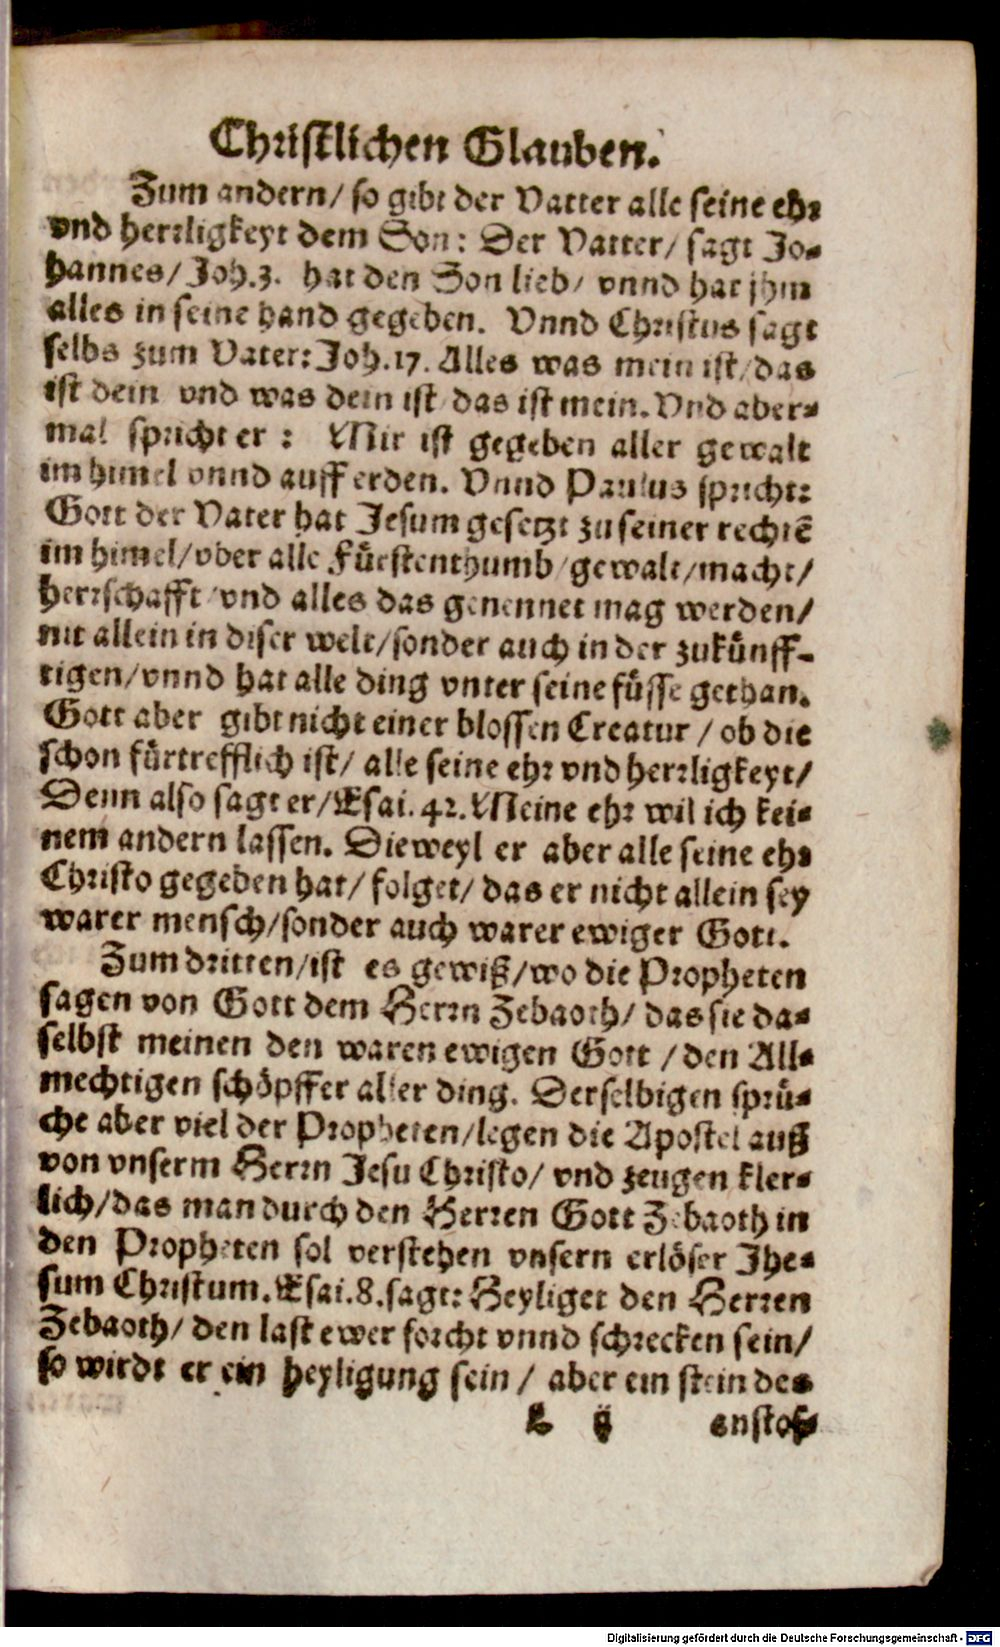 Christlichen Glauben.
Zum andern/ so gibt der Vatter alle seine ehr
vnd herrligkeyt dem Son: Der Vatter/ sagt Jo-
hannes/ Joh.3. hat den Son lieb/ vnnd hat jhm
alles in seine hand gegeben. Vnnd Christus sagt
selbs zum Vater: Joh.17. Alles was mein ist/ das
ist dein vnd was dein ist das ist mein. Vnd aber-
mal spricht er: Mir ist gegeben aller gewalt
im himel vnnd auff erden. Vnnd Paulus spricht:
Gott der Vater hat Jesum gesetzt zu seiner rechtē
im himel/ vber alle Fürstenthumb/ gewalt/ macht/
herrschafft/ vnd alles das genennet mag werden/
nit allein in diser welt/ sonder auch in der zukünff-
tigen/ vnnd hat alle ding vnter seine füsse gethan.
Gott aber gibt nicht einer blossen Creatur/ ob die
schon fürtrefflich ist/ alle seine ehr vnd herrligkeyt/
Denn also sagt er/ Esai.42. Meine ehr wil ich kei-
nem andern lassen. Dieweyl er aber alle seine ehr
Christo gegeben hat/ folget/ das er nicht allein sey
warer mensch/ sonder auch warer ewiger Gott.
Zum dritten/ ist es gewiß/ wo die Propheten
sagen von Gott dem Herrn Zebaoth/ das sie da-
selbst meinen den waren ewigen Gott/ den All-
mechtigen schöpffer aller ding. Derselbigen sprü-
che aber viel der Propheten/ legen die Apostel auß
von vnserm Herrn Jesu Christo/ vnd zeugen kler-
lich/ das man durch den Herren Gott Zebaoth in
den Propheten sol verstehen vnsern erlöser Jhe-
sum Christum. Esai.8. sagt: Heyliget den Herren
Zebaoth/ den last ewer forcht vnnd schrecken sein/
so wirdt er ein heyligung sein/ aber ein stein des
L ij anstos-
Digitalisierung gefördert durch die Deutsche Forschungsgemeinschaft - DFG